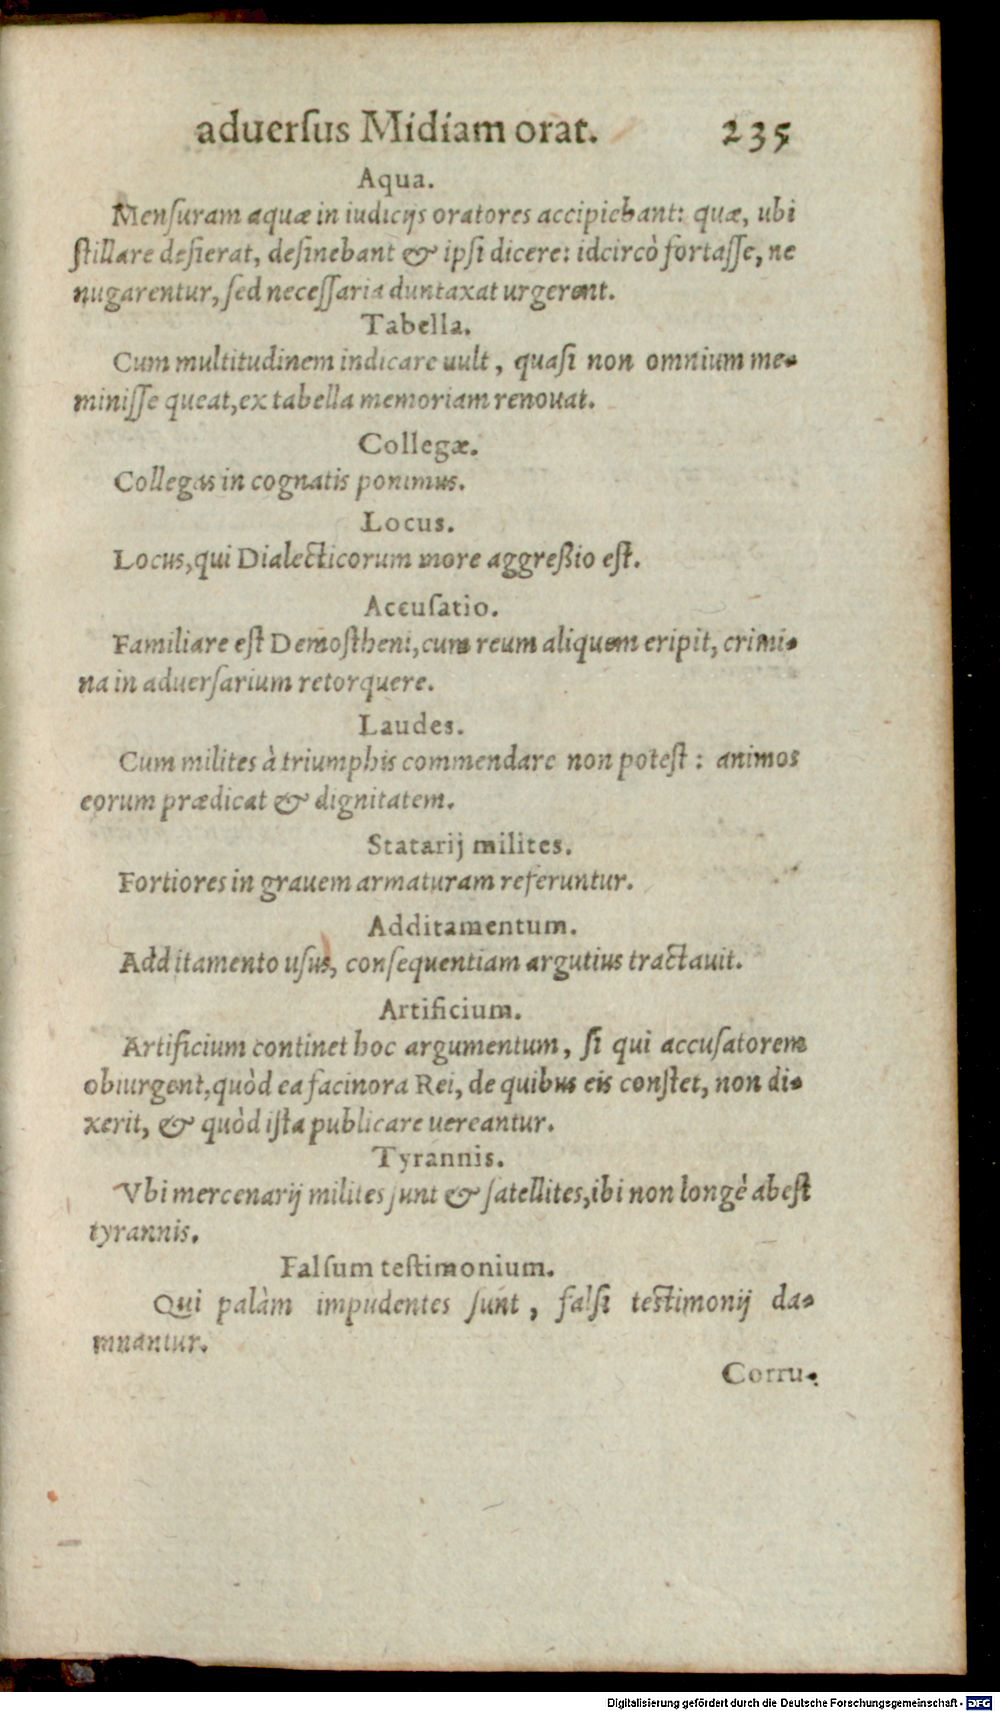 aduerſus Midiam orat. 235
Aqua.
Menſuram aquæ in iudicijs oratores accipiebant: quæ, ubi
ſtillare deſierat, deſinebant & ipſi dicere: idcircò fortaſſe, ne
nugarentur, ſed neceſſaria duntaxat urgerent.
Tabella.
Cum multitudinem indicare uult, quaſi non omnium me-
miniſſe queat, ex tabella memoriam renouat.
Collegæ.
Collegas in cognatis ponimus.
Locus.
Locus, qui Dialecticorum more aggreßio eſt.
Accuſatio.
Familiare eſt Demoſtheni, cum reum aliquem eripit, crimi-
na in aduerſarium retorquere.
Laudes.
Cum milites à triumphis commendare non poteſt: animos
eorum prædicat & dignitatem.
Statarij milites.
Fortiores in grauem armaturam referuntur.
Additamentum.
Additamento uſus, conſequentiam argutius tractauit.
Artificium.
Artificium continet hoc argumentum, ſi qui accuſatorem
obiurgent, quòd ea facinora Rei, de quibus eis conſtet, non di-
xerit, & quòd iſta publicare uereantur.
Tyrannis.
Vbi mercenarij milites ſunt & ſatellites, ibi non longè abeſt
tyrannis.
Falſum teſtimonium.
Qui palàm impudentes ſunt, falſi teſtimonij da-
mnantur.
Corru-
Digitalisierung gefördert durch die Deutsche Forschungsgemeinschaft - DFG